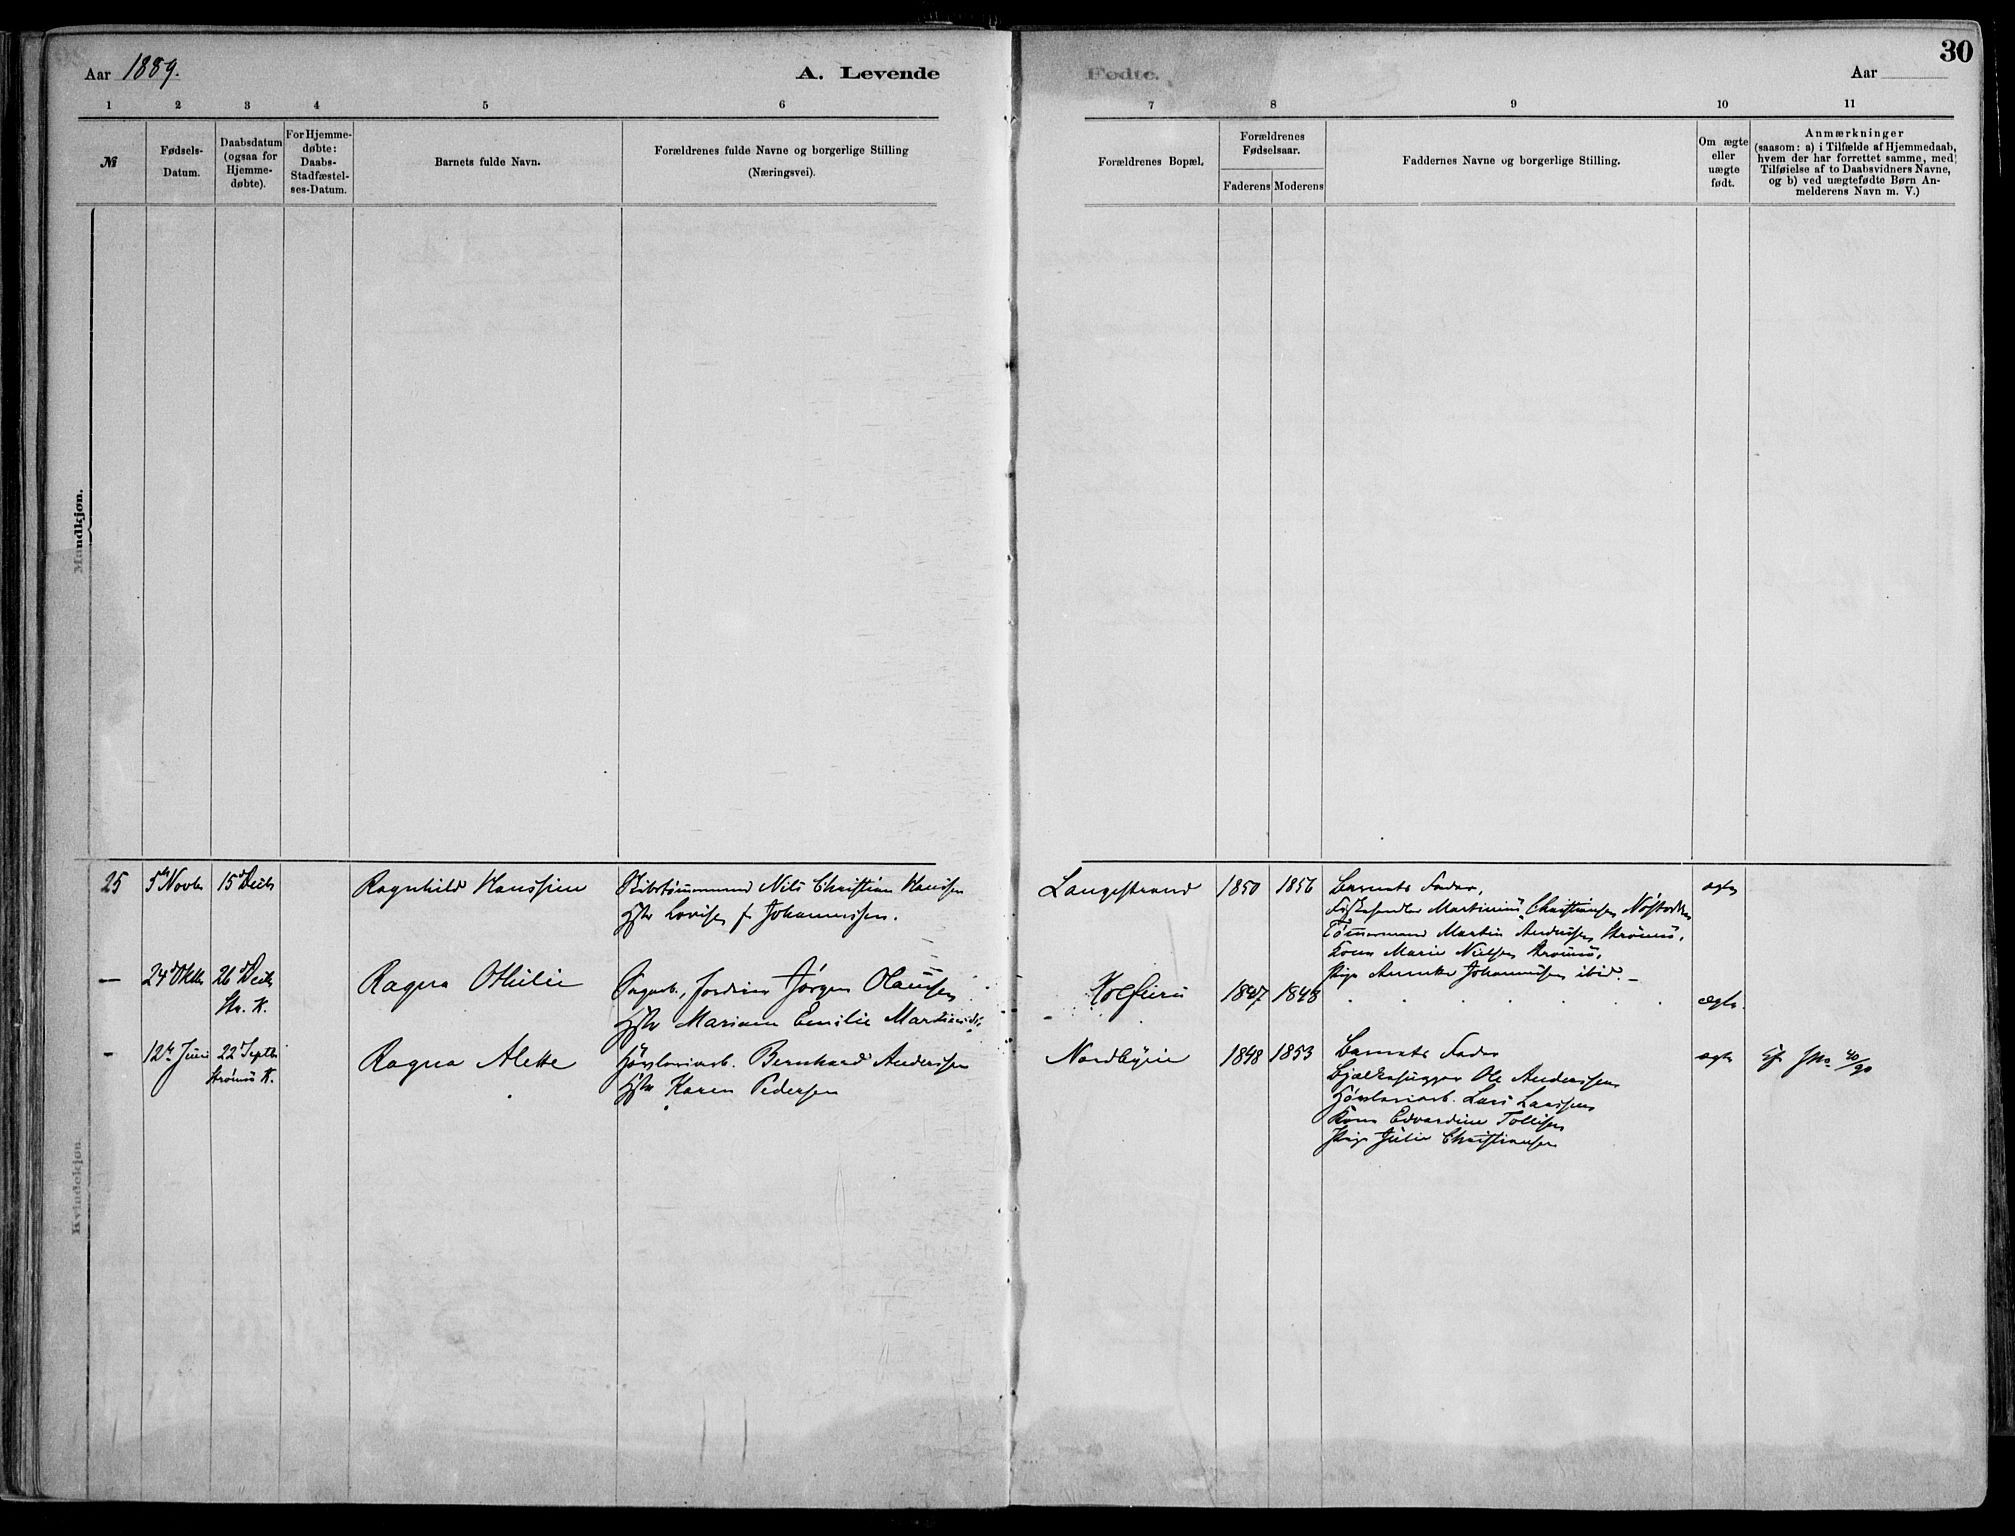 Aar 1889.
A. Levende
Fødte.
Aar
30
1 2 3 4 5 6
7 8 9 10 11
№
Fødsels-
Datum.
Daabsdatum
(ogsaa for
Hjemme-
døbte).
For Hjemme-
døbte:
Daabs-
Stadfæstel-
ses-Datum.
Barnets fulde Navn.
Forældrenes fulde Navne og borgerlige Stilling
(Næringsvei).
Forældrenes Bopæl.
Forældrenes
Fødselsaar.
Faderens Moderens
Faddernes Navne og borgerlige Stilling.
Om ægte
eller
uægte
født.
Anmærkninger
(saasom: a) i Tilfælde af Hjemmedaab,
hvem der har forrettet samme, med
Tilføielse af to Daabsvidners Navne,
og b) ved uægtefødte Børn An-
melderens Navn m. V.)
Mandkjøn.
Kvindekjøn
25
5te Novbr
15d Decbr
Ragnhild Hanssine
Nils Christian Hanssen
Hstr Lovise f. Johannessen.
Langestrand
1850
1856
Barnets Fader,
Fiskehandler Martinius Christiansen
Tømmermand Martin Anderssen Strømsø,
Kona Marie Nielsen Strømsø,
Pige Johannessen ibid. -
ægte
—
24d Oktbr
26d Decbr
Str. K.
Ragna Othilie
Jørgen Olaussen
Hstr Mariane Emilie
1847
1848
ægte.
-
12te Juni
22d Septbr
Strømsø K.
Ragna Alette
Høvleriarb. Bernhard Anderssen
Hstr Karen Pedersen
Nordbyeie
1848
1853
Barnets Fader
Bjælkehugger Ole Anderssen
Høvleriarb. Lars Larssen
Kone Edvardine Tollefsen
Pige Julie Christiansen
ægte
40/90